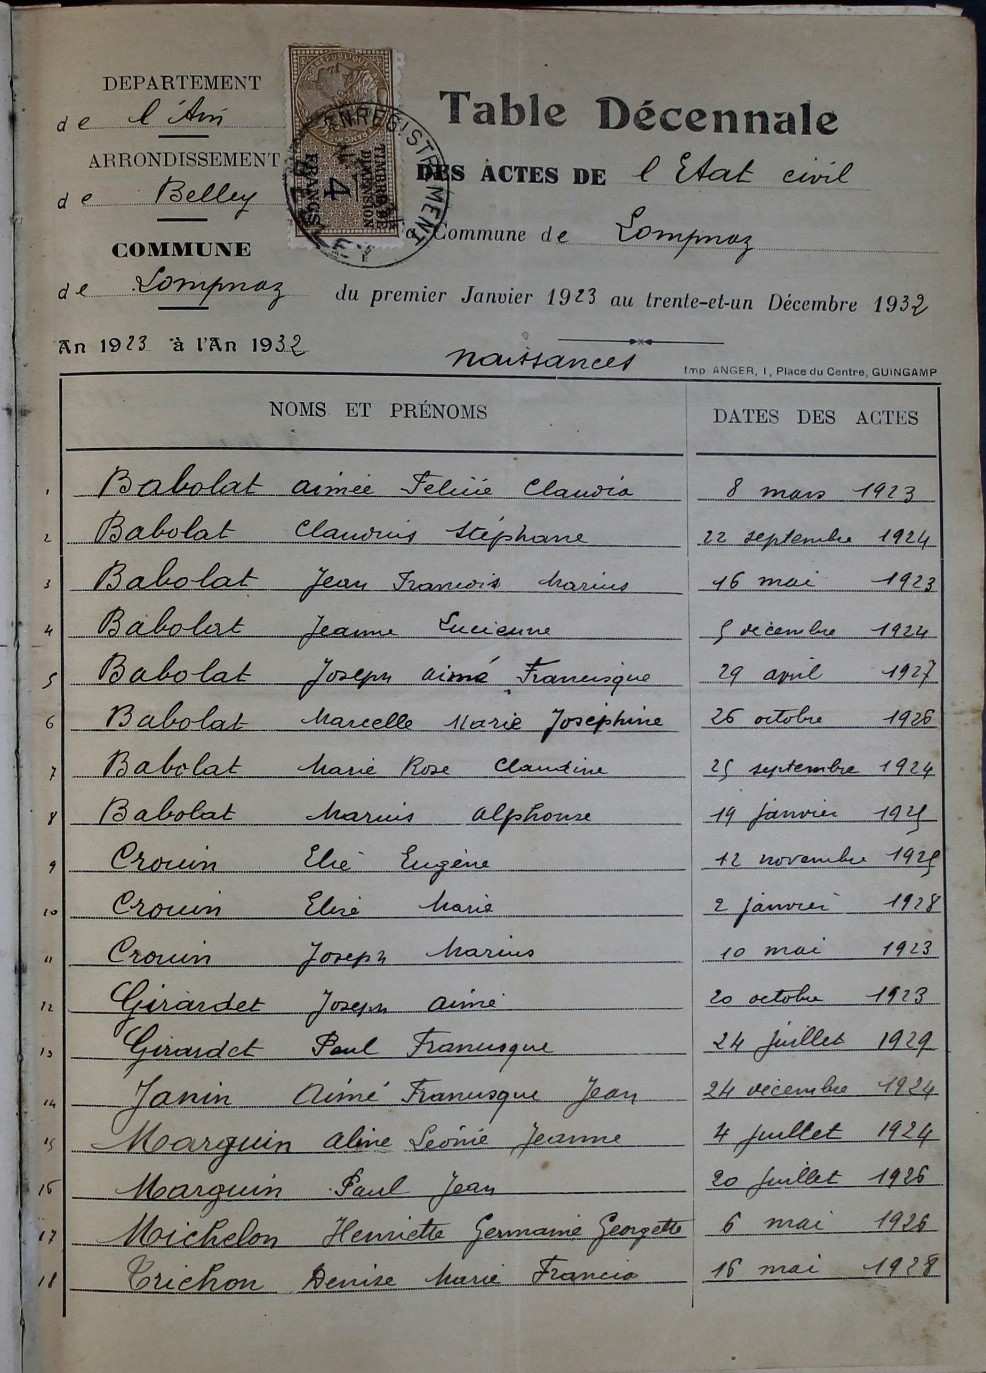 DEPARTEMENT
de l'Ain
ARRONDISSEMENT
de Belley
COMMUNE
de Lompnaz
An 1923 à l'An 1932
ENREGISTREMENT
TIMBRE DE
DIMENSION
4
FRANCS
Table Décennale
DES ACTES DE l'Etat civil
Commune de Lompnaz
du premier Janvier 1923 au trente-et-un Décembre 1932
naissances
Imp. ANGER, 1, Place du Centre, GUINGAMP
NOMS ET PRÉNOMS DATES DES ACTES
1 Babolat Aimée Felicie Claudia 8 mars 1923
2 Babolat Claudius Stéphane 22 septembre 1924
3 Babolat Jean Francois Marius 16 mai 1923
4 Babolat Jeanne Lucienne 5 décembre 1924
5 Babolat Joseph Aimé Francisque 29 avril 1927
6 Babolat Marcelle Marie Joséphine 26 octobre 1926
7 Babolat Marie Rose Claudine 25 septembre 1924
8 Babolat Marius Alphonse 19 janvier 1925
9 Crouin Elie Eugène 12 novembre 1925
10 Crouin Elise Marie 2 janvier 1928
11 Crouin Joseph Marius 10 mai 1923
12 Girardet Joseph Aimé 20 octobre 1923
13 Girardet Paul Francisque 24 juillet 1929
14 Janin Aimé Francisque Jean 24 décembre 1924
15 Marguin Aline Léonie Jeanne 4 juillet 1924
16 Marguin Paul Jean 20 juillet 1926
17 Michelon Henriette Germaine Georgette 6 mai 1926
18 Trichon Denise Marie Francia 16 mai 1928